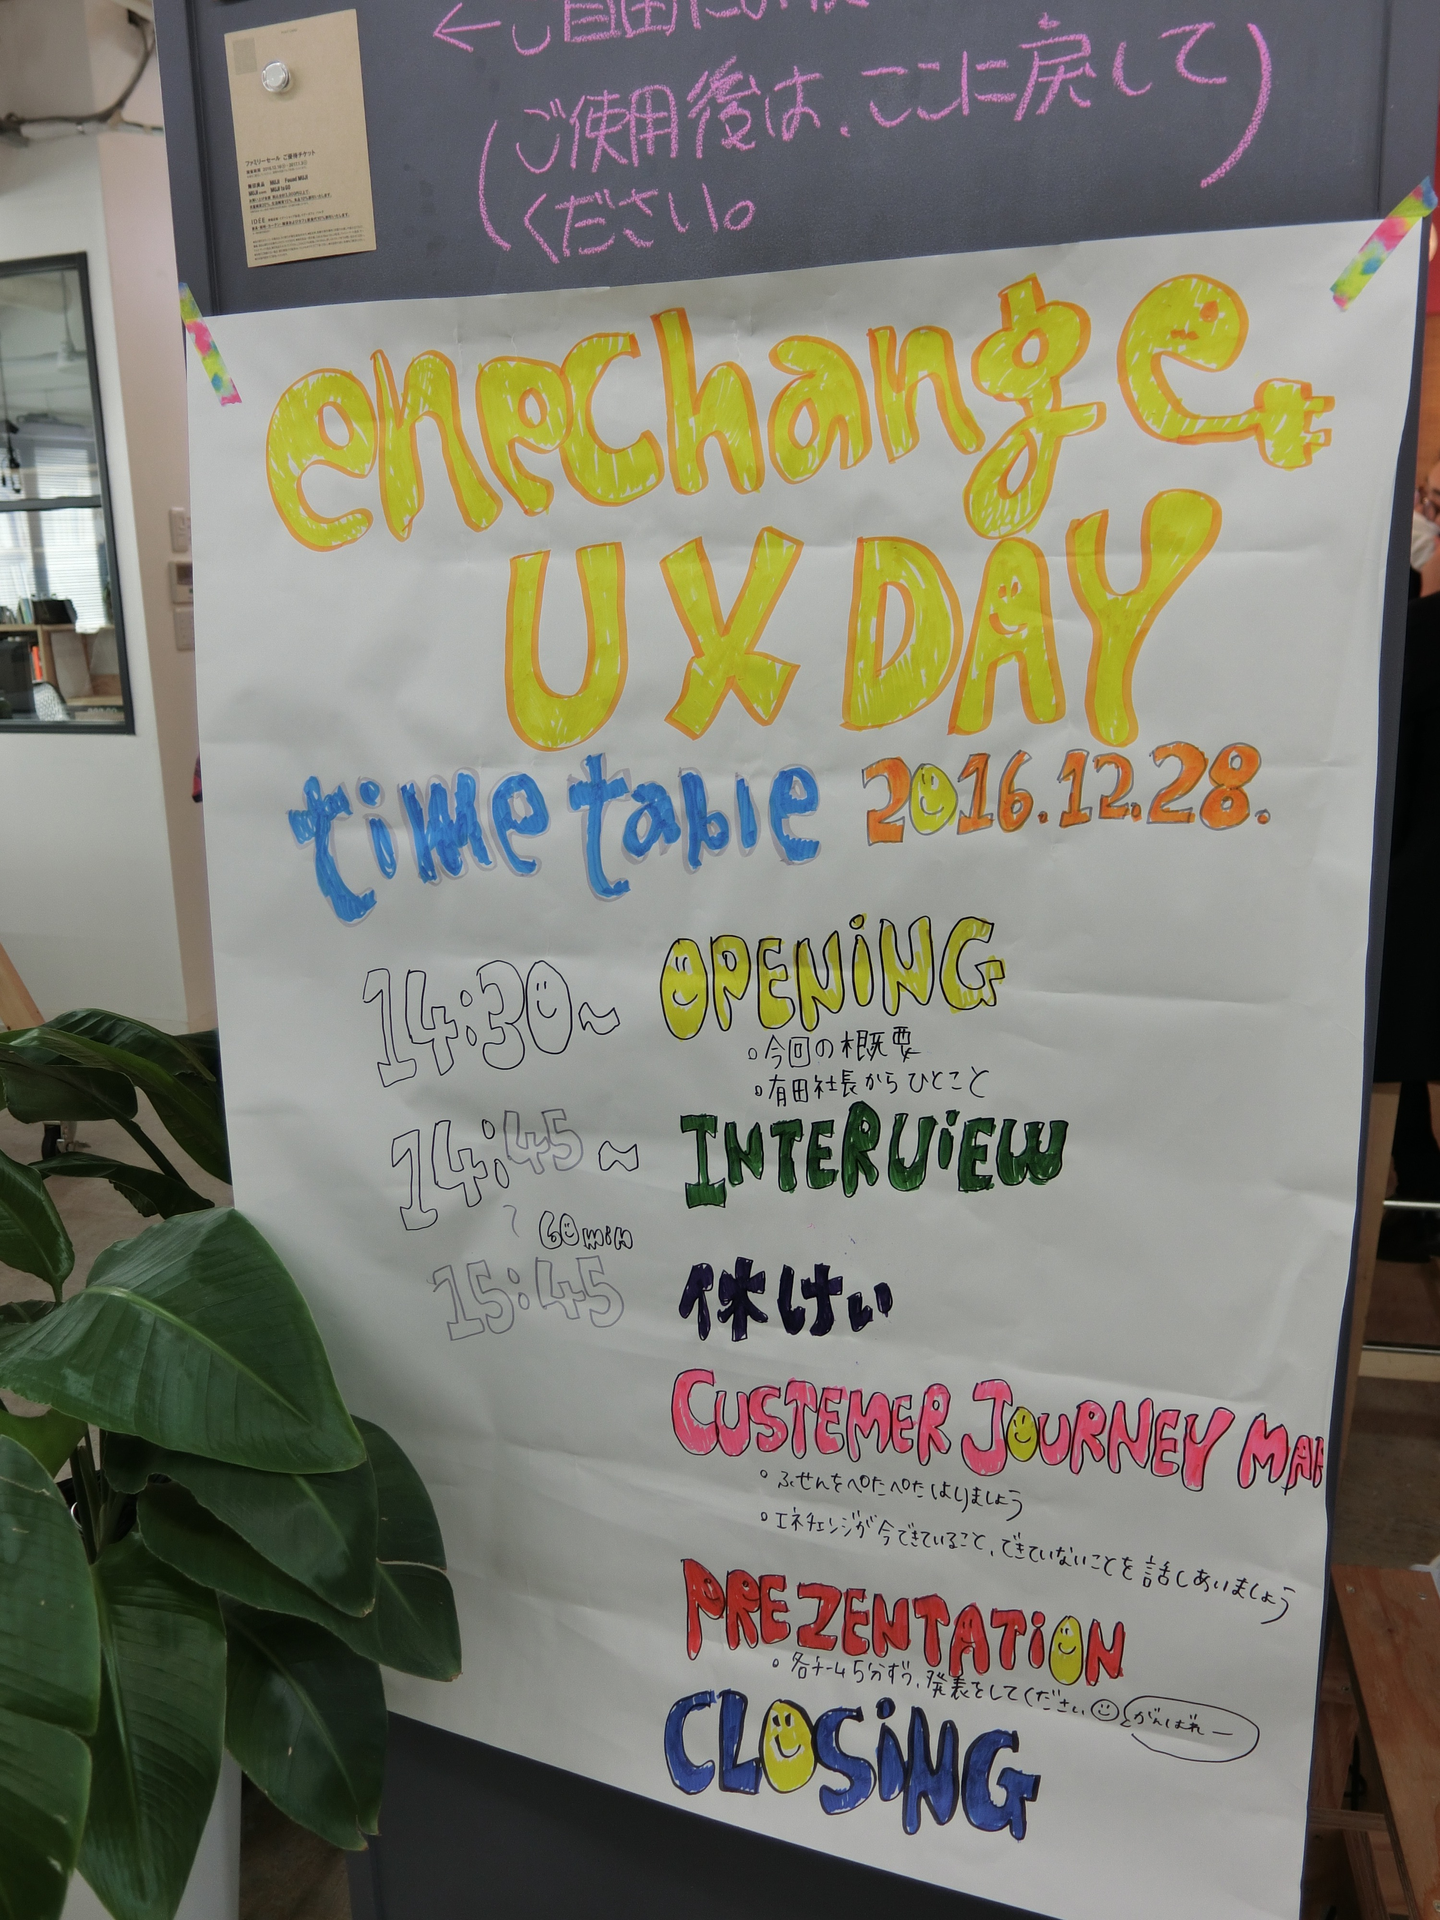 ←ご自由にお使
(ご使用後は、ここに戻して
ください。)
ファミリーセール ご優待チケット
enechange
UX DAY
time table 2016.12.28.
14:30~ OPENING
・今回の概要
・有田社長からひとこと
14:45~ INTERVIEW
60min
15:45 休けい
CUSTEMER JOURNEY MAP
・ふせんをペたペたはりましょう
・エネチェンジが今できていること、できていないことを話しあいましょう
PREZENTATION
・各チーム5分ずつ、発表をしてください がんばれー
CLOSING